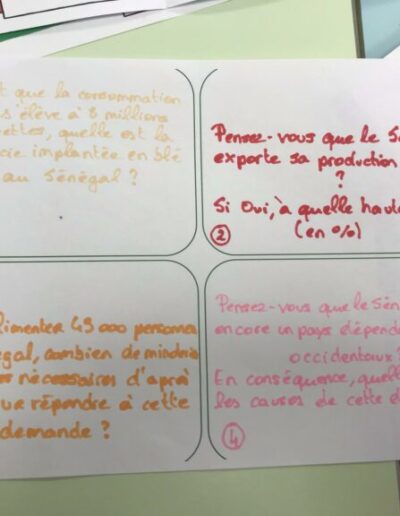 t que la consommation
s'élève à 8 millions
ettes, quelle est la
cie implantée en blé
au Sénégal ?
Pensez-vous que le S
exporte sa production
?
Si Oui, à quelle haute
(en %)
2
limenter 45 000 personnes
égal, combien de
nécessaires d'apr
ur répondre à cette
demande ?
Pensez-vous que le Sén
encore un pays dépend
occidentaux ?
En conséquence, quell
les causes de cette d
4